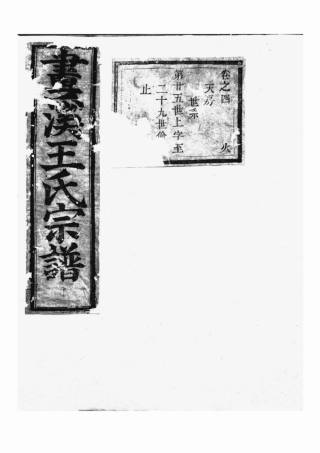 卷之四 火
天房
世系
第廿五世上字至
二十九世
止
畫溪王氏宗譜